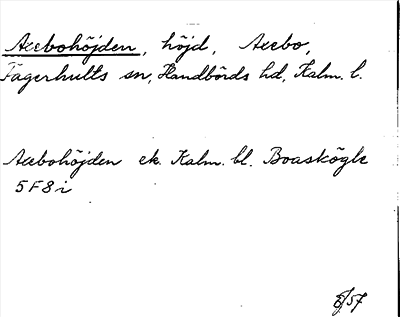 Acebohöjden, höjd, Acebo,
Fagerhults sn, Handbörds hd, Kalm. l.
Acebohöjden ek. Kalm. bl. Boaskögle
5 F 8 i
8/57